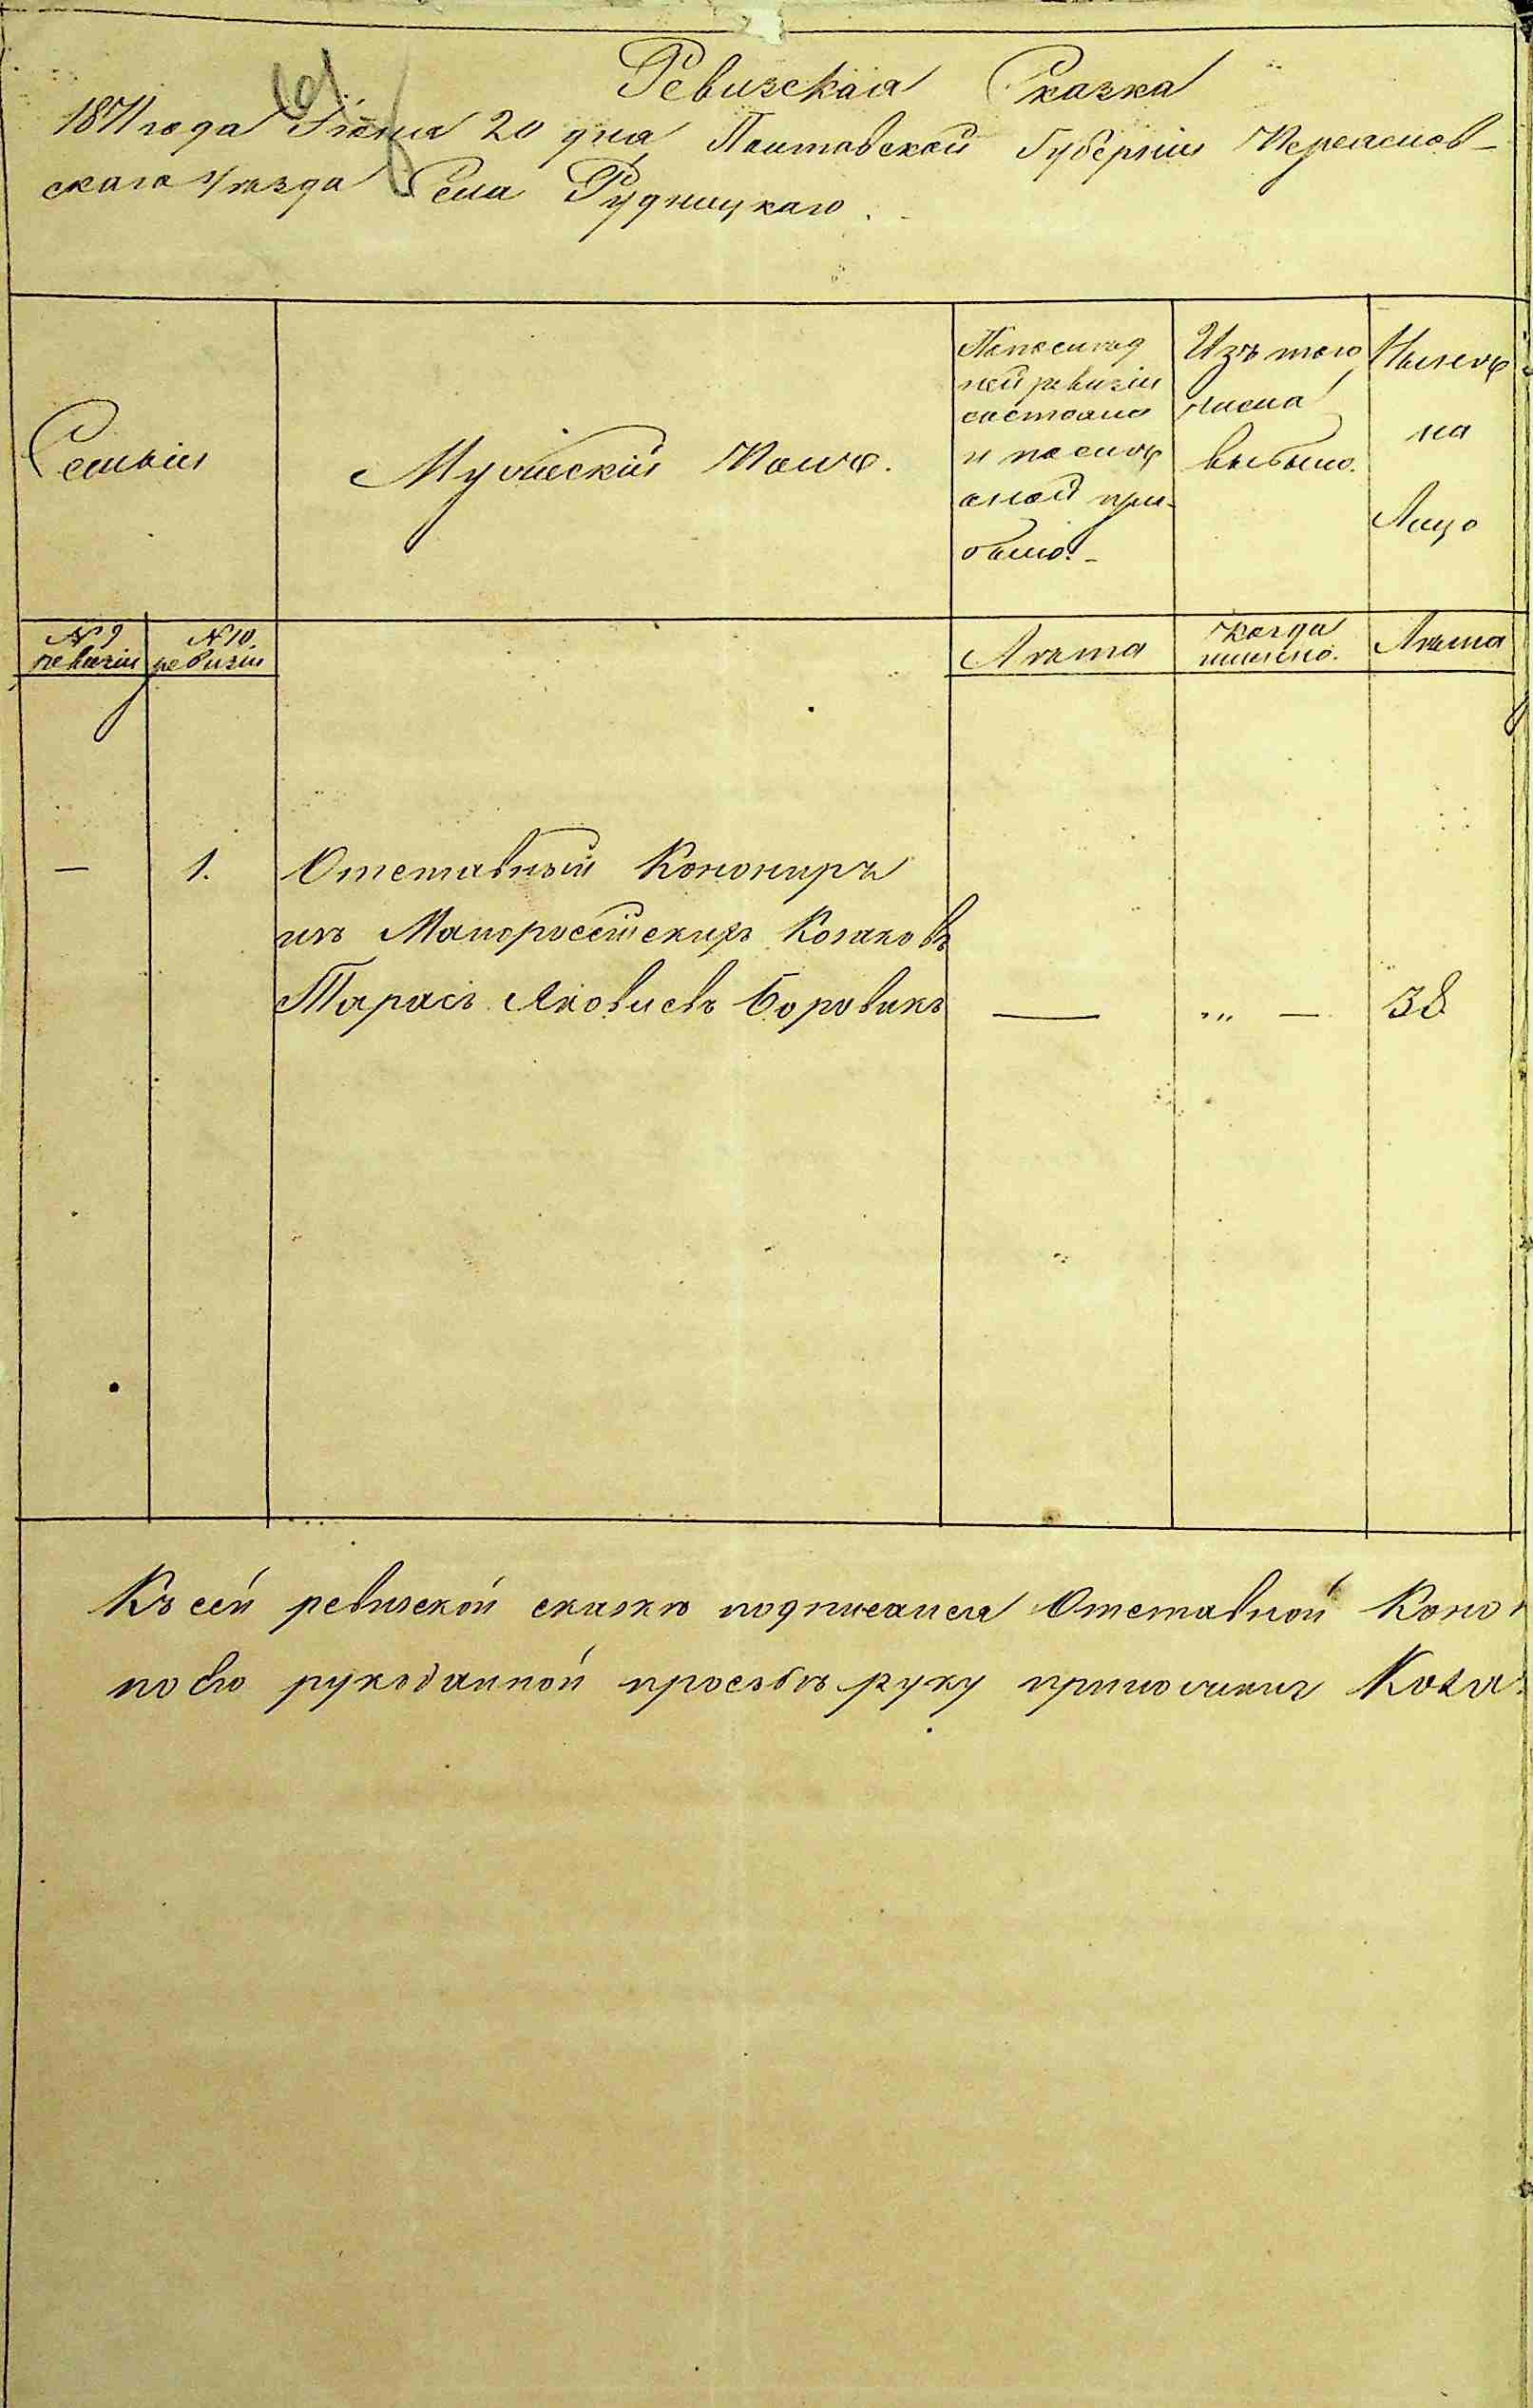 Ревизская Сказка
1871 года Іюня 20 дня Полтавской Губерніи Переяслов-
скаго Уѣзда Села Рудницкаго.
Семьи
Мужескій Полъ.
По послѣд
ней ревизіи
состояло
и послѣ
оной при-
было.
Изъ того
числа
выбыло.
Нынѣ
на
Лицо
№ 9
ревизіи
№ 10.
ревизіи
Лѣта
Когда
именно.
Лѣта
— 1. Отставный Конониръ
изъ Малороссійскихъ Козаковъ
Тарасъ Яковлевъ Боровикъ — „ — 38
Къ сей ревизской сказкѣ подписался Отставной Коно
по его рукоданной просьбѣ руку приложилъ Коза